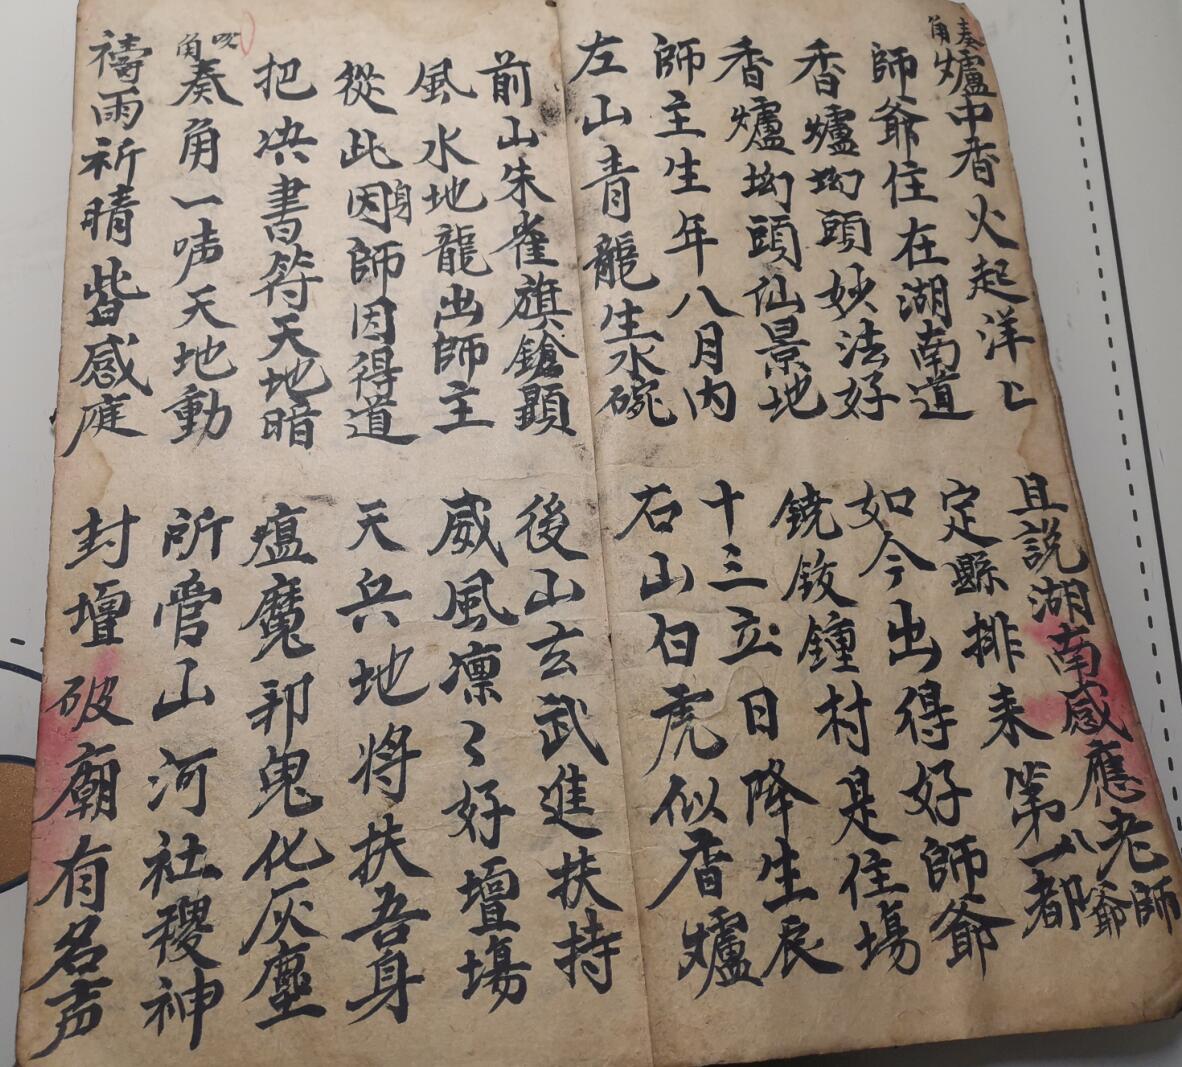 奏角
爐中香火起洋〻 且說湖南感應老師爺
師爺住在湖南道 定縣排来第一八都
香爐坳頭妙法好 如今出得好師爺
香爐坳頭仙景地 鐃鈸鐘村是住場
師主生年八月内 十三立日降生辰
左山青龍生水碗 右山白虎似香爐
前山朱雀旗鎗顯 後山玄武進扶持
風水地龍出師主 威風凛〻好壇場
從此因身師因得道 天兵地将扶吾身
把决書符天地暗 瘟魔邪鬼化灰塵
角
奏角一声天地動 所管山河社稷神
禱雨祈晴皆感庭 封壇破廟有名声